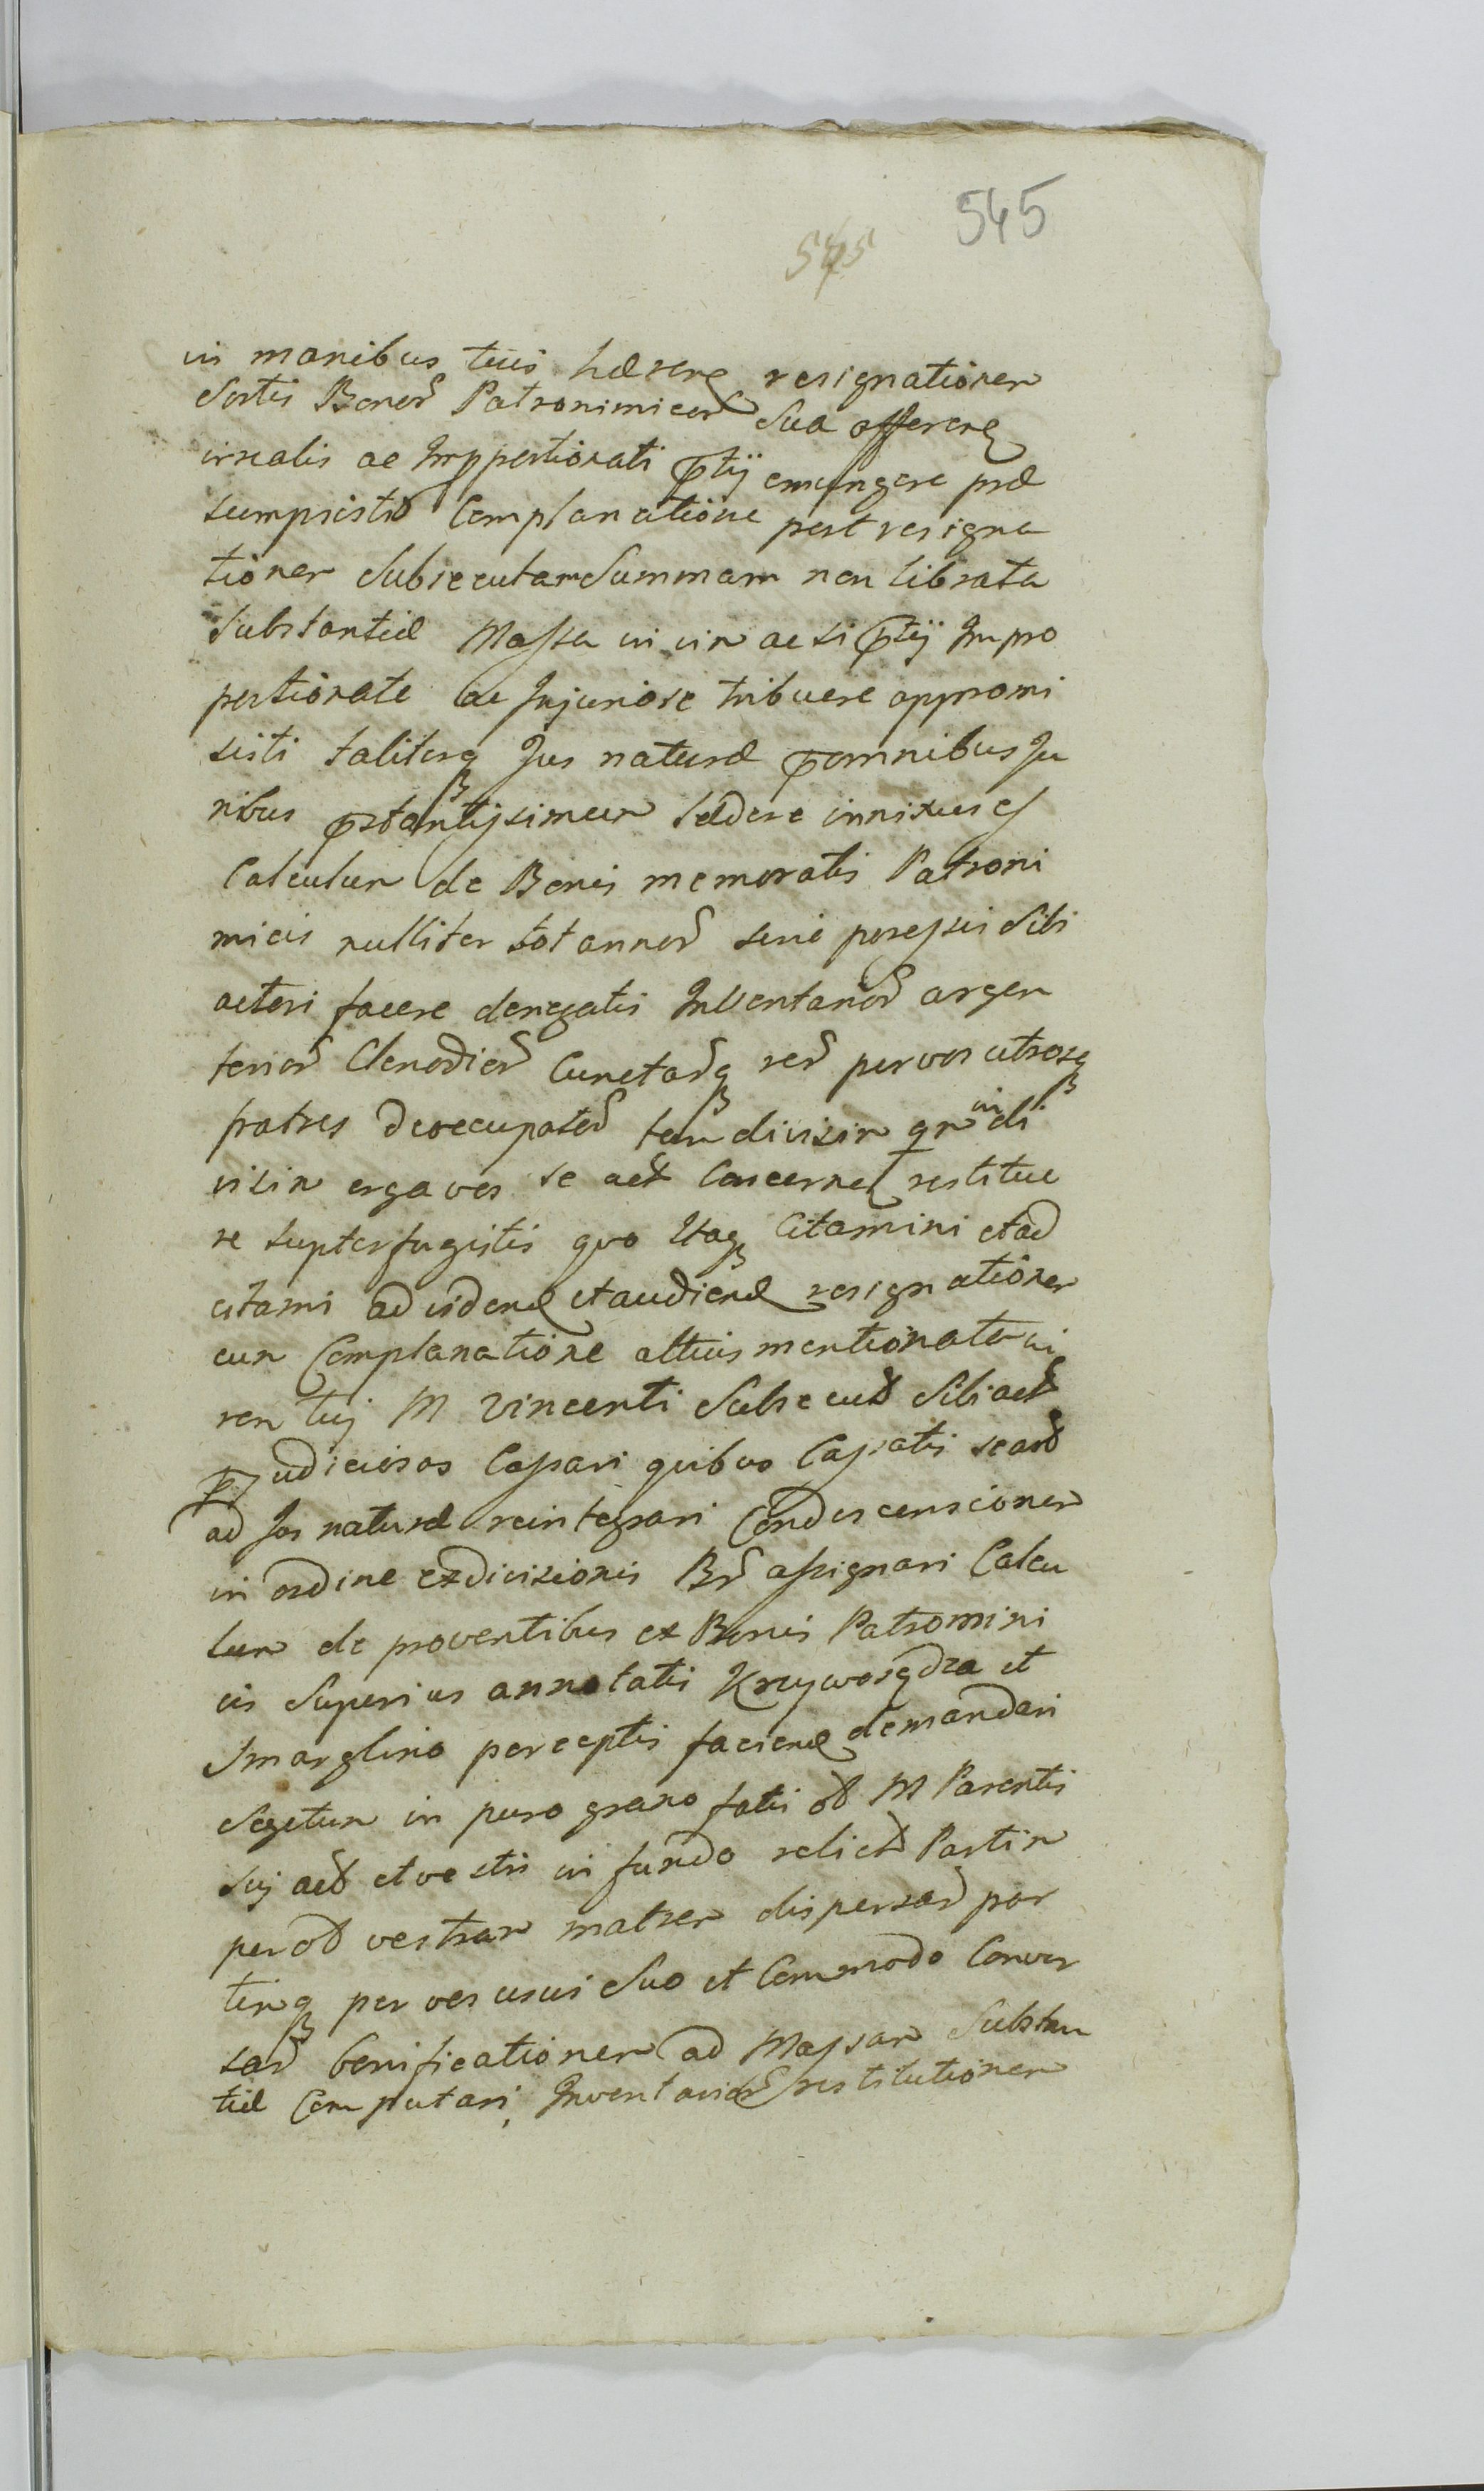 545
545
in manibus tuis hæren resignationem
Sortis Bonor Patronimicor Sua offeren
irrealis ac Imppertionati ptij emungere præ
sumpsisti Complanatione post resigna
tionem Subsecutam Summam non librata
Substantiæ Massa in vim ac si ptij Impro
portionate ac Injuriose tribuere appromi
sisti taliterq Jus naturæ p omnibus Ju
ribus pstantissimum lædere innixus es
Calculum de Bonis memoratis Patroni
micis nulliter tot annor serie possessis Sibi
actori facere denegatis Inventarior argen
terior Clenodior Cunctarq rer per vos utrosq
fratres deoccupator tam divisim qm indi
visim erga vos se act Concernen restitue
re supterfugistis quo Itaq Citamini et ad
citami ad viden et audien resignationem
cum Complanatione altius mentionata in
rem tuj M Vincenti Subsecut Sibi act
pjudiciosas Cassari quibus Cassatis se act
ad Jus naturæ reintegrari Condescensionem
in ordine exdivisionis Br assignari Calcu
lum de proventibus ex Bonis Patromini
cis Superius annotatis Krzywosądza et
Smarglino perceptis facien demandari
Segetum in puro grano fatis ol M Parentis
Sui act et vestri in fundo relict Partim
per ol vestram matrem dispersar par
timq per vos usui Suo et Commodo Conver
sar bonificationem ad Massam Substan
tiæ Computari, Inventarior restitutionem